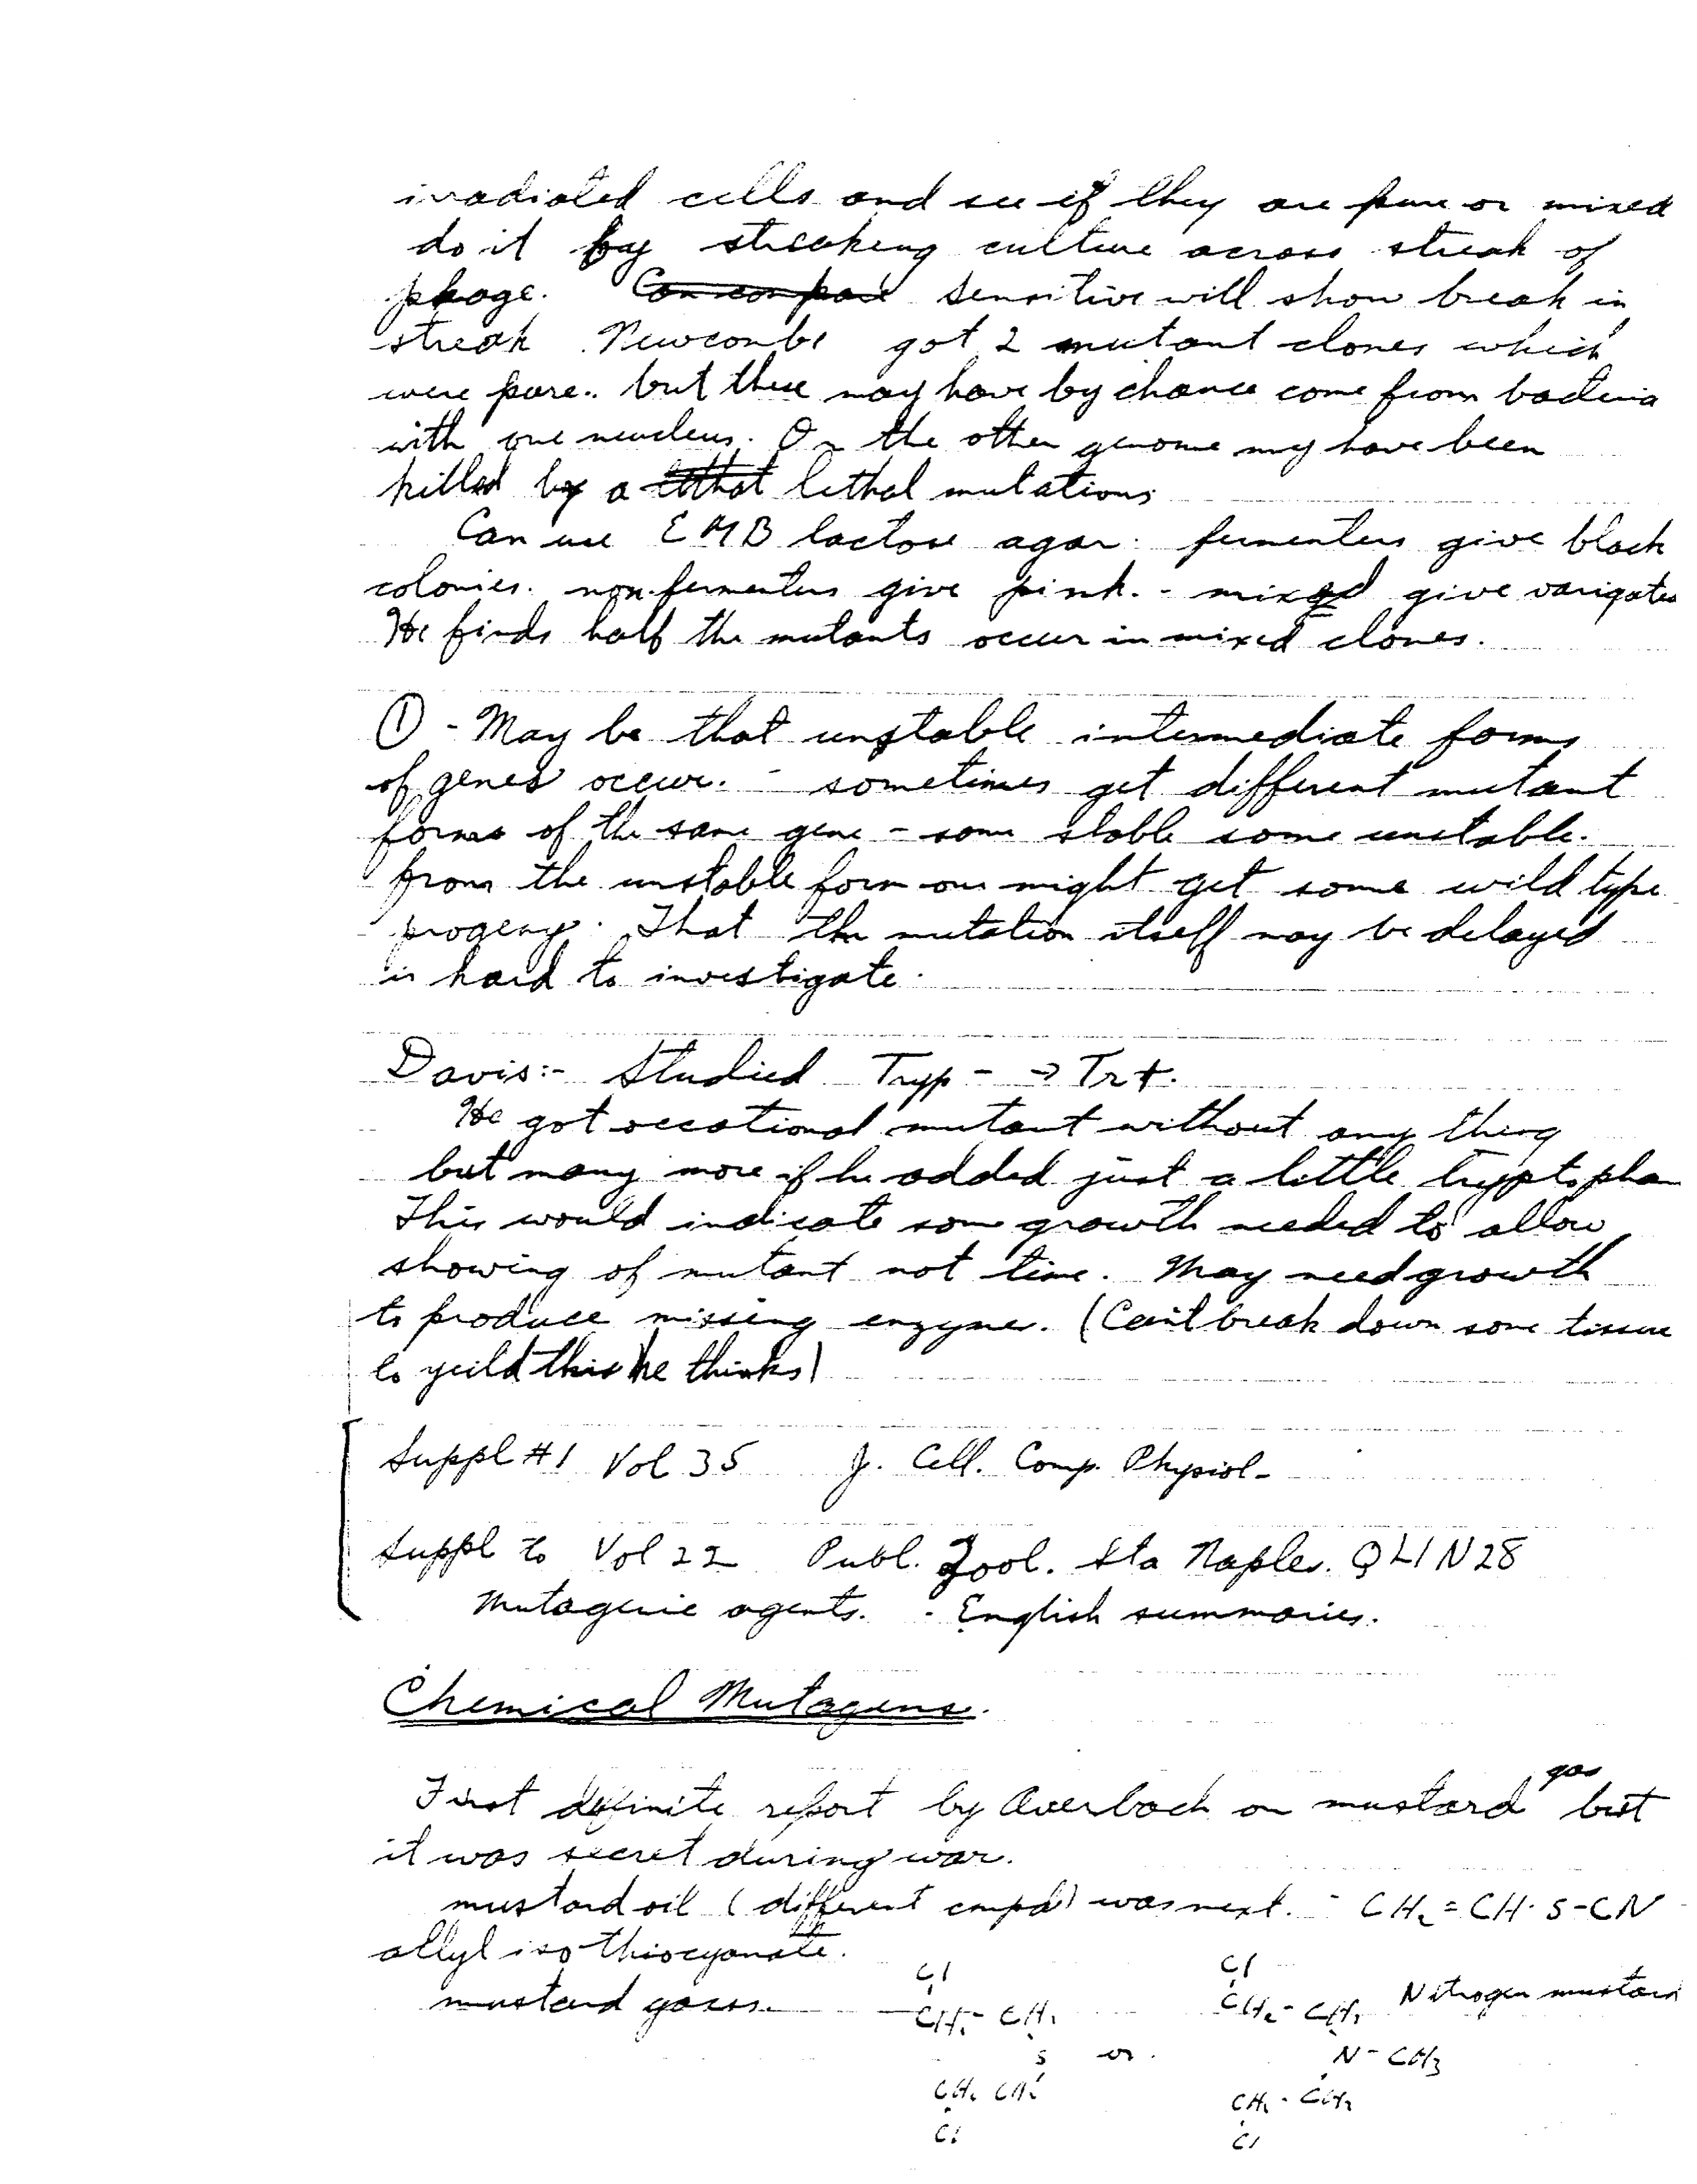 irradiated cells and see if they are pure or mixed
do it by streaking culture across streak of
phage. Can compare sensitive will show break in
streak. Newcombe got 2 mutant clones which
were pure. but these may have by chance come from bacteria
with one neucleus. Or the other genome may have been
killed by a lethal mutations
Can use EMB lactose agar. fermenters give black
colonies. non fermenters give pink. - mixed give varigated
He finds half the mutants occur in mixed clones.
① - May be that unstable intermediate forms
of genes occur. - sometimes get different mutant
forms of the same gene - some stable some unstable.
from the unstable form one might get some wild type
progeny. That the mutation itself may be delayed
is hard to investigate.
Davis:- Studied Tryp - → Tr+.
He got occational mutant without any thing
but many more if he added just a little tryptophan
This would indicate some growth needed to allow
showing of mutant not time. May need growth
to produce missing enzyme. (Can't break down some tissue
to yeild this he thinks)
Suppl #1 Vol 35 J. Cell. Comp. Physiol-
Suppl to Vol 22 Publ. Zool. Sta Naples. QL1N28
Mutagenic agents. - English summaries.
Chemical Mutagens.
First definite report by Auerbach on mustard gas but
it was secret during war.
mustard oil (different cmpd) was next. - CH2=CH·S-CN
allyl isothiocyanate.
mustard gases.
Cl Cl
CH2-CH2 CH2-CH2 Nitrogen mustard
S or. N-CH3
CH2 CH2 CH2-CH2
Cl Cl